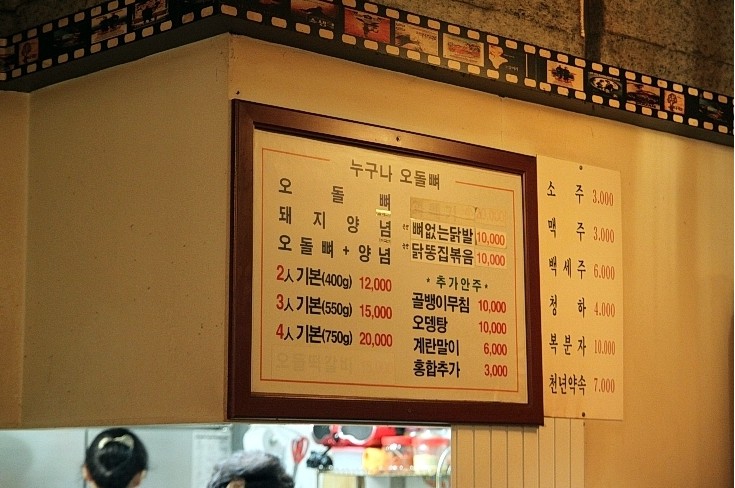 누구나 오돌뼈
오 돌 뼈
돼 지 양 념
오돌뼈 + 양념
2人 기본(400g) 12,000
3人 기본(550g) 15,000
4人 기본(750g) 20,000
뼈없는닭발 10,000
닭똥집볶음 10,000
* 추가안주 *
골뱅이무침 10,000
오뎅탕 10,000
계란말이 6,000
홍합추가 3,000
소 주 3.000
맥 주 3.000
백 세 주 6.000
청 하 4.000
복 분 자 10.000
천년약속 7.000